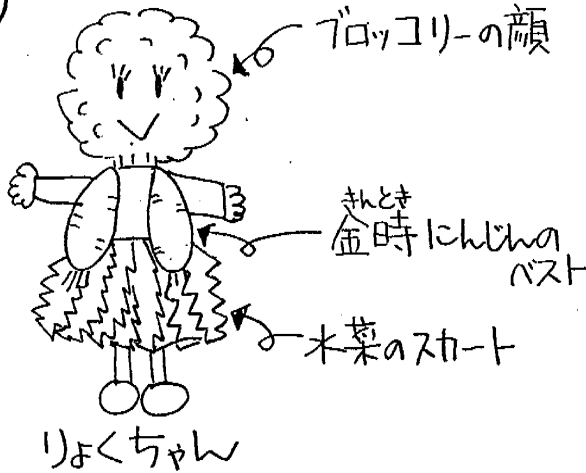 ブロッコリーの顔
きんとき
金時にんじんの
ベスト
水菜のスカート
りょくちゃん